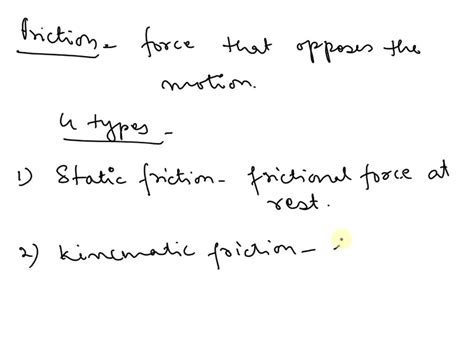 Friction - force that opposes the
motion.
4 types -
1) Static friction - frictional force at
rest.
2) Kinematic friction -